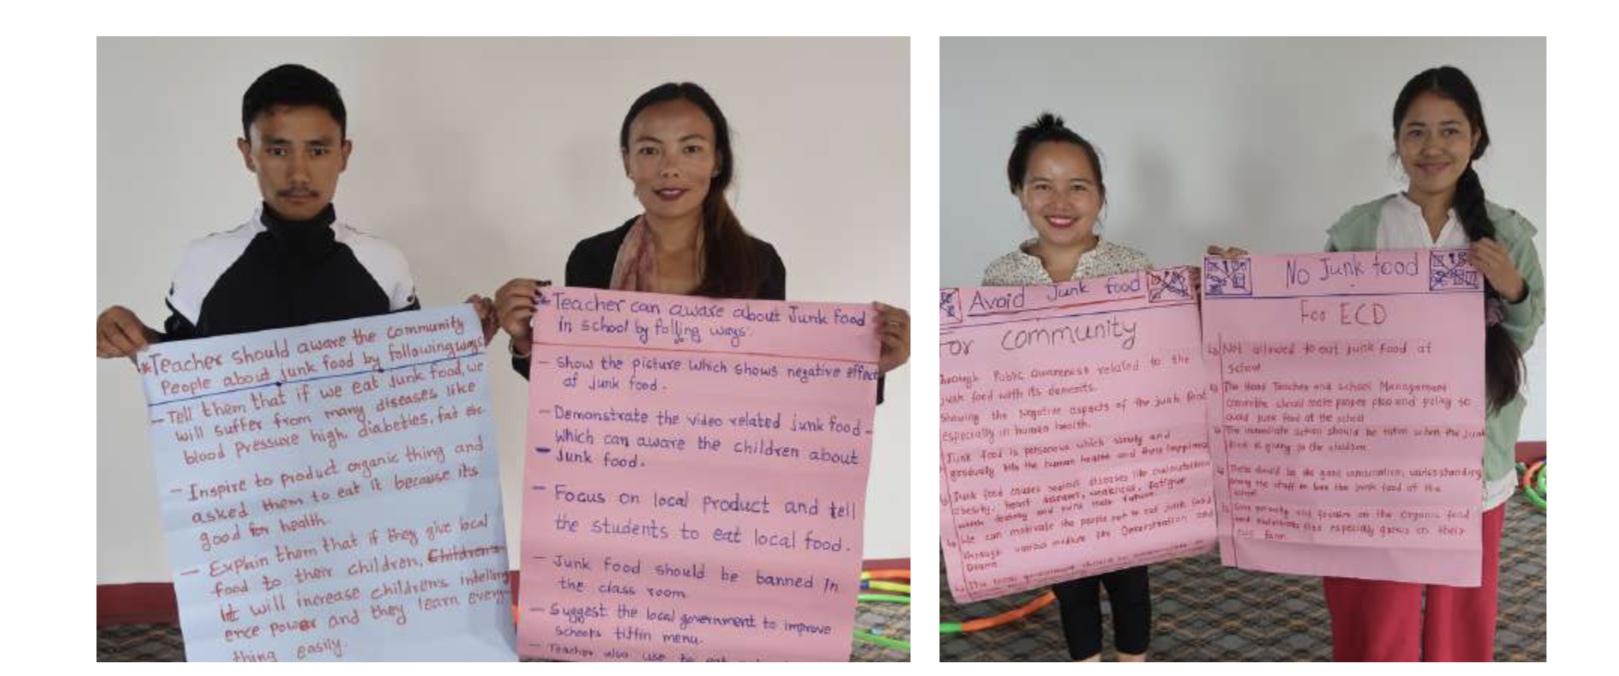 *Teacher should aware the community
People about junk food by following ways
- Tell them that if we eat junk food, we
will suffer from many diseases like
blood Pressure high, diabeties, fat etc.
- Inspire to product organic thing and
asked them to eat it because its
good for health.
- Explain them that if they give local
food to their children, Childrens
it will increase childrens intellig
ence power and they learn every
thing easily.
Teacher can aware about Junk food
in school by folling ways.
- Show the picture which shows negative effect
of Junk food.
- Demonstrate the video related junk food -
which can aware the children about
- Junk food.
- Focus on local product and tell
the students to eat local food.
- Junk food should be banned in
the class room
- Suggest the local government to improve
schools tiffin menu.
- Teacher also use to eat
Avoid Junk food
For community
through Public awareness related to the
junk food with its demerits.
Showing the Negative aspects of the junk food
especially in human health.
Junk food is which slowly and
gradually kills the human health and there happiness
Junk food causes serious diseases like
obesity, heart diseases, weakness, fatigue
We can motivate the people not to eat junk food
through various medium like Demonstration and
Drama
The local government should
No Junk food
For ECD
Not allowed to eat junk food at
school.
The Head Teacher and School Management
committee should make proper plan and policy to
avoid junk food at the school
The immediate action should be taken when the junk
food is giving to the children.
There should be the good communication, understanding
among the staff to ban the junk food at the
school
Give priority and focuses on the Organic food
and especially grows on their
own farm